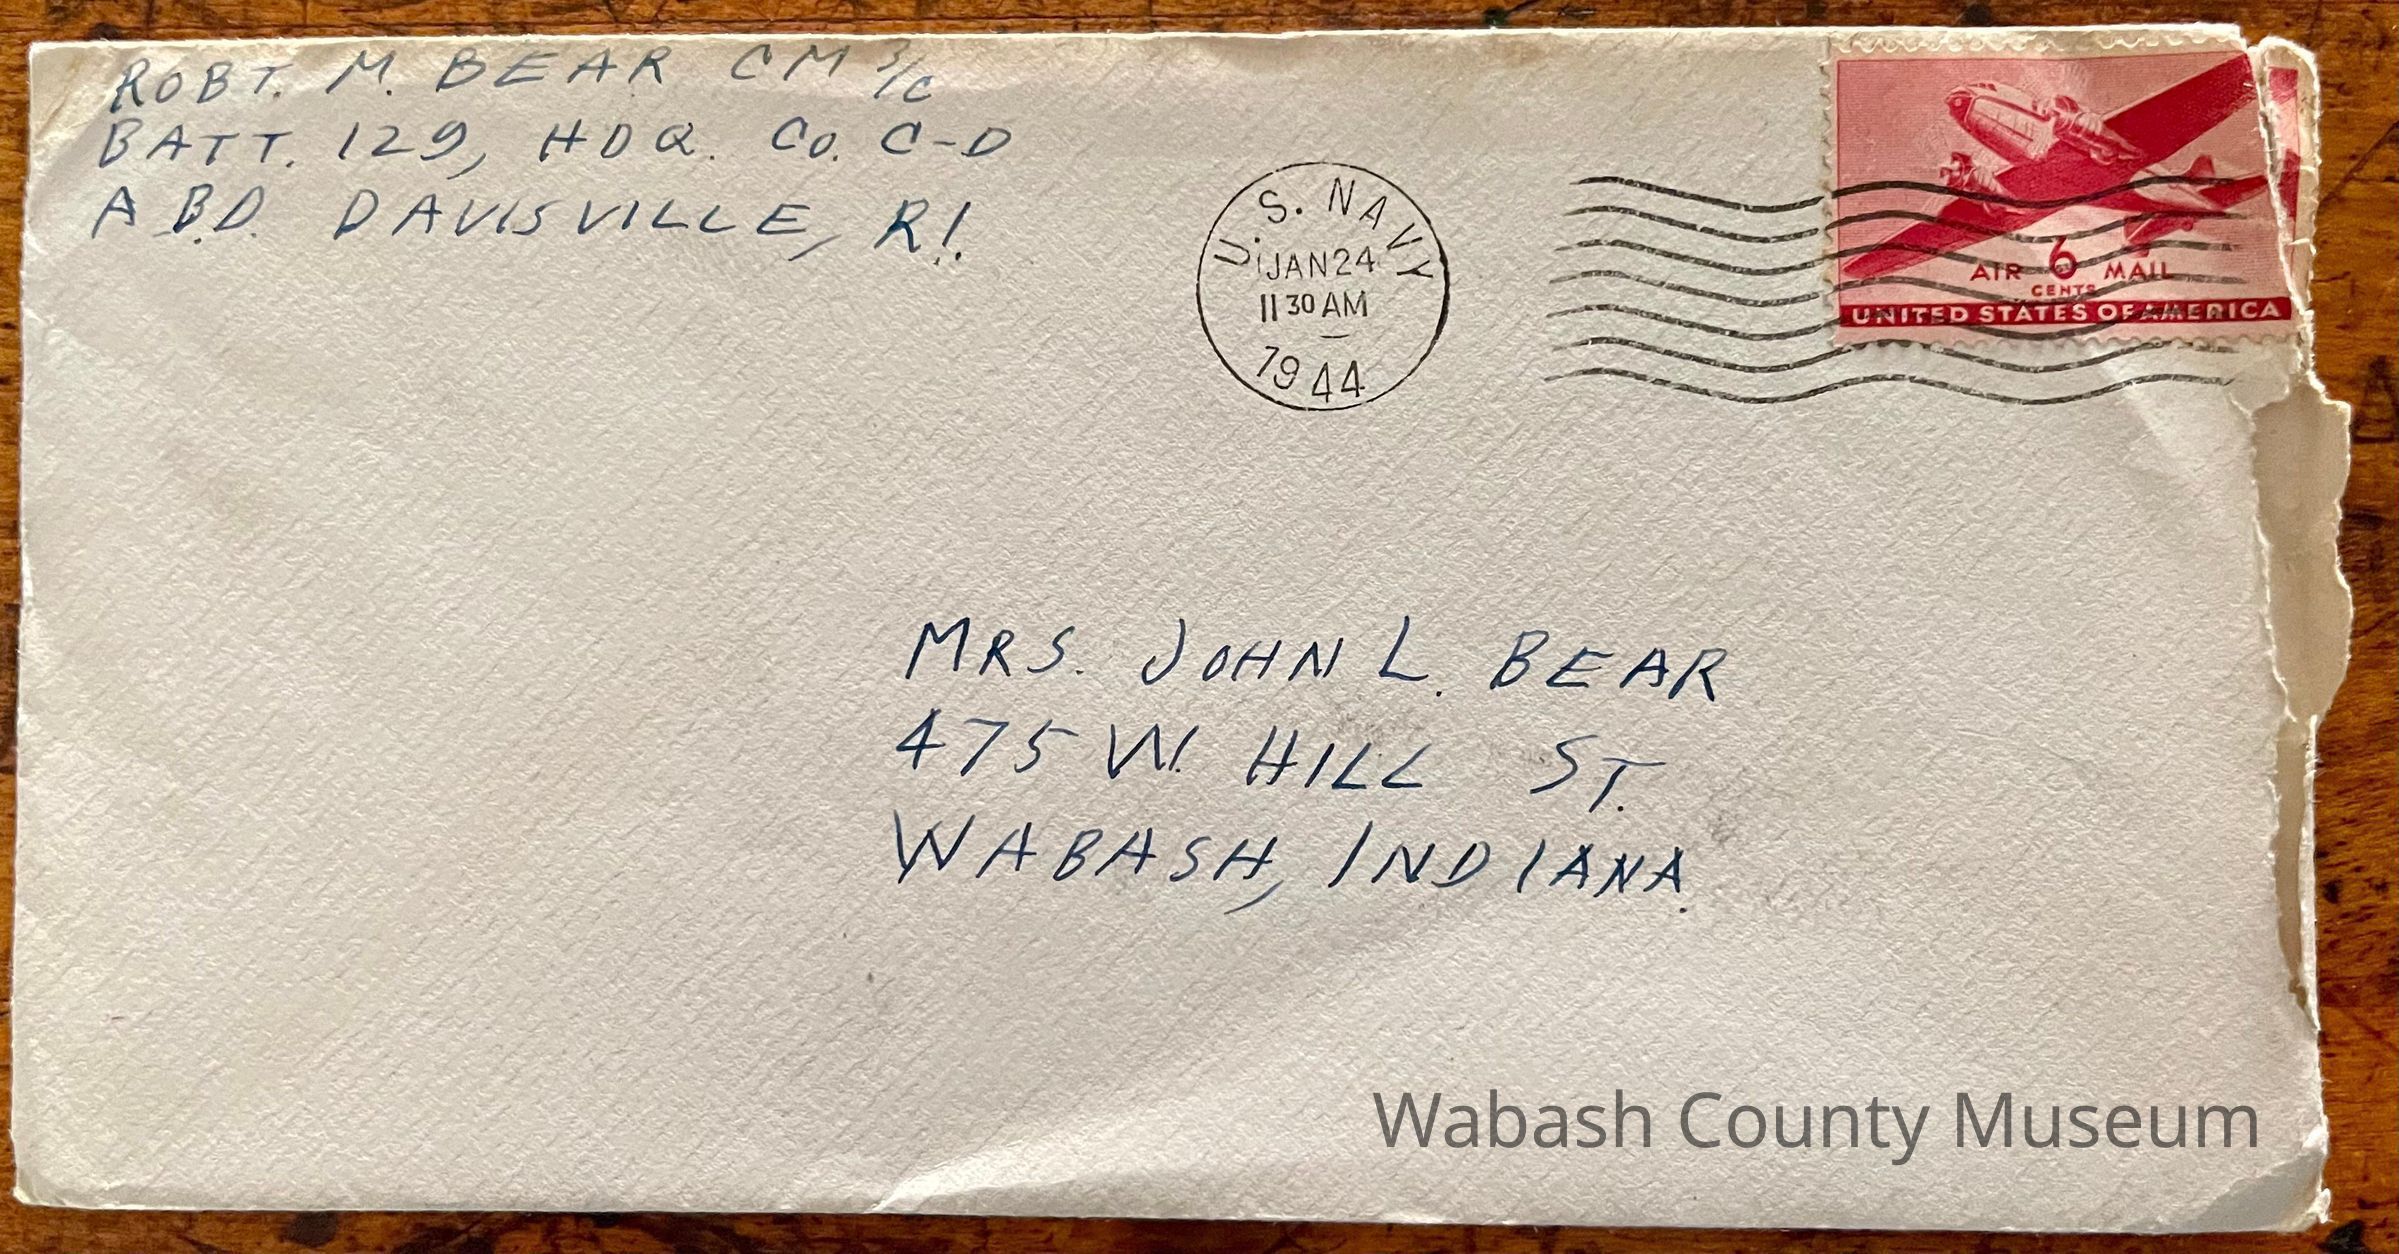 ROBT. M. BEAR CM 3/C
BATT. 129, HDQ. CO. C-D
A.B.D. DAVISVILLE, R.I.
U.S. NAVY
JAN 24
11 30 AM
1944
AIR 6 MAIL
CENTS
UNITED STATES OF AMERICA
MRS. JOHN L. BEAR
475 W. HILL ST.
WABASH, INDIANA.
Wabash County Museum